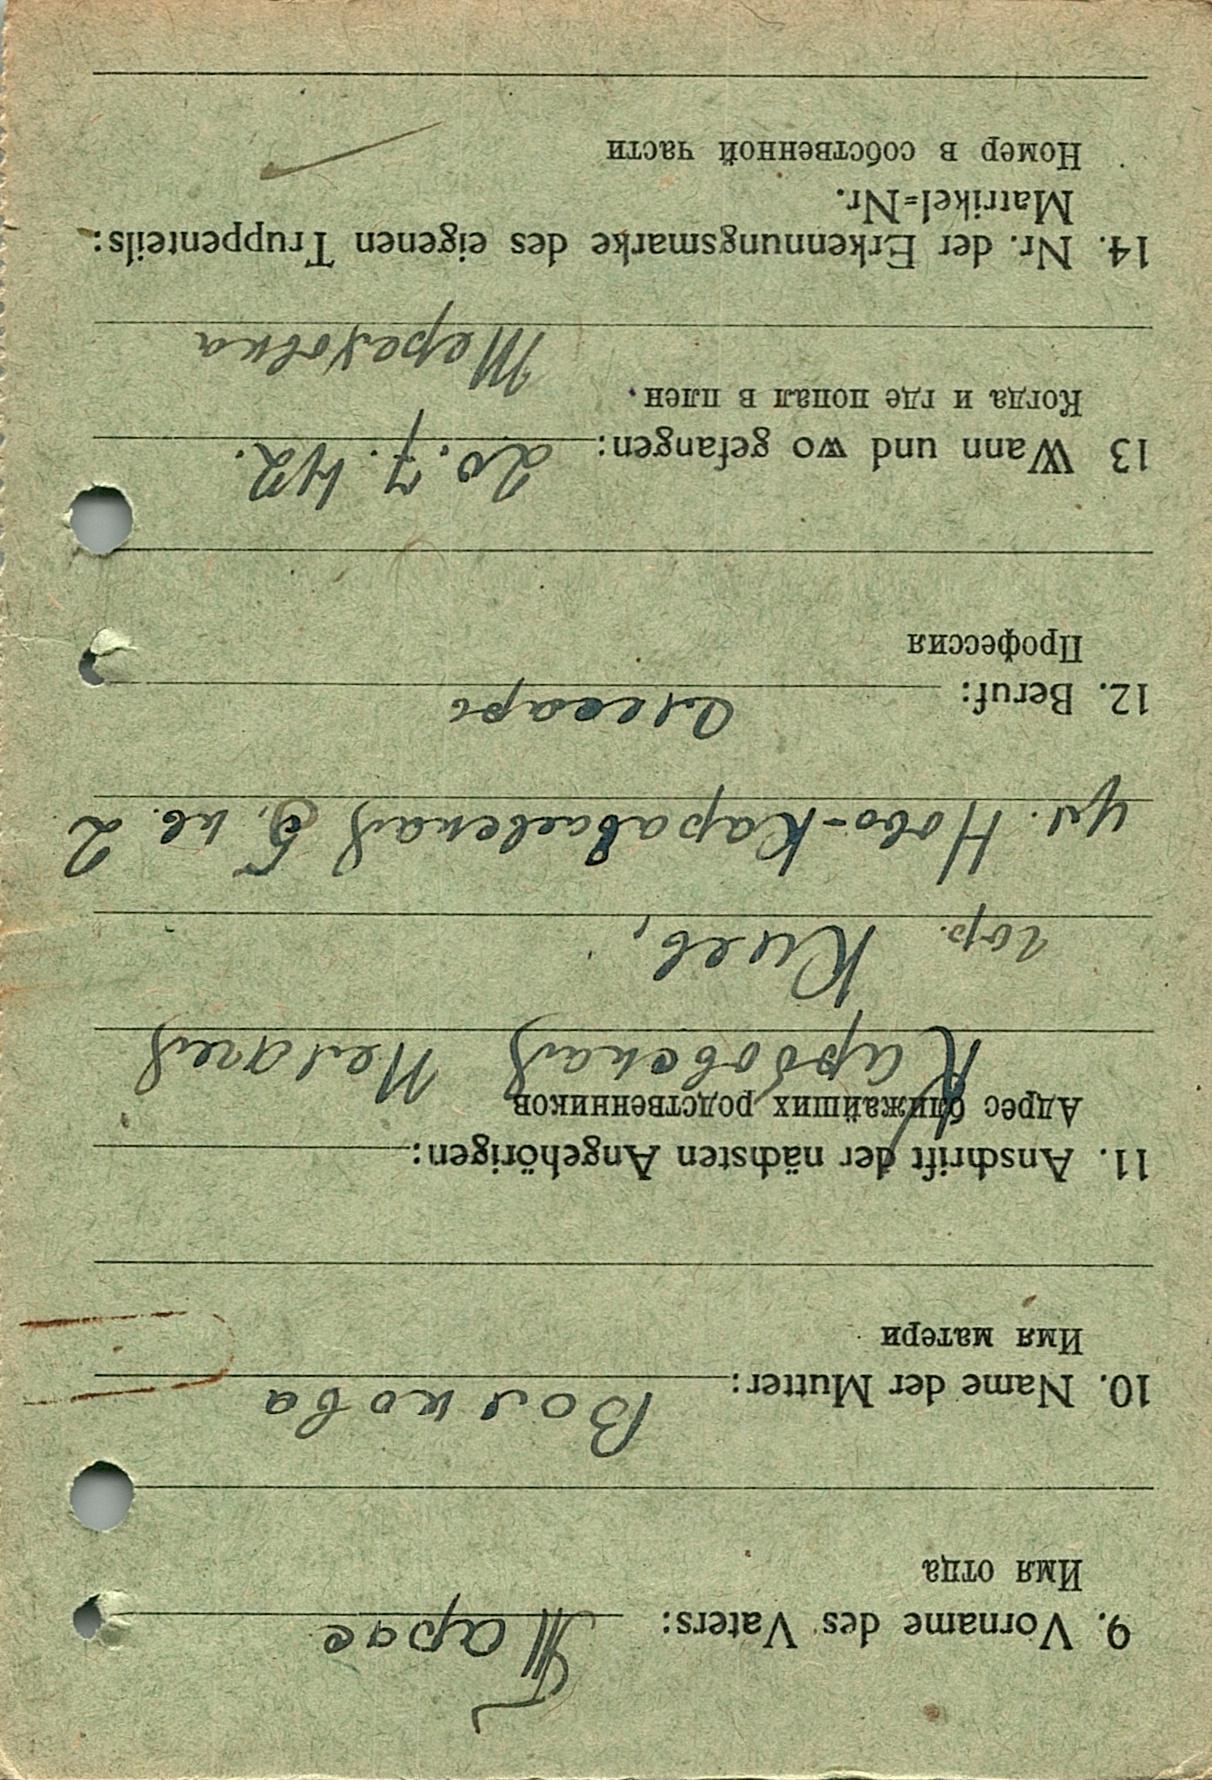 9. Vorname des Vaters: Тарас
Имя отца
10. Name der Mutter: Волкова
Имя матери
11. Anschrift der nächsten Angehörigen:
Адрес ближайших родственников
Карбовская Пелагея
гор. Киев,
ул. Ново-Караваевская 5, кв. 2
12. Beruf: Слесарь
Профессия
13 Wann und wo gefangen: 20. 7. 42.
Когда и где попал в плен.
Тереховка
14. Nr. der Erkennungsmarke des eigenen Truppenteils:
Matrikel=Nr.
Номер в собственной части